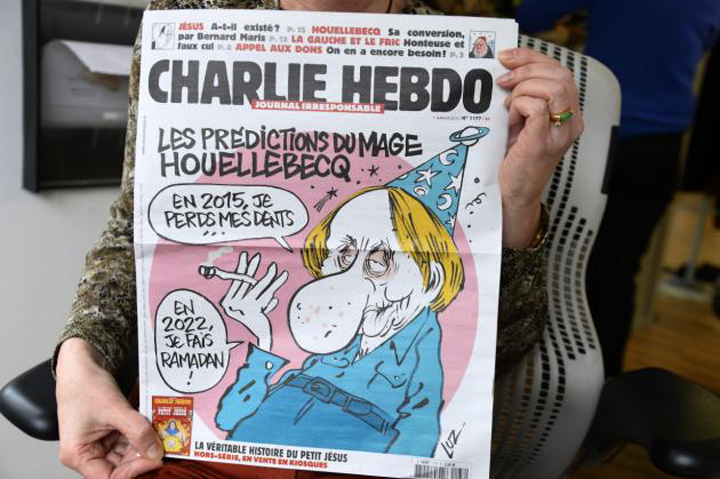 JÉSUS A-t-il existé? P. 15 HOUELLEBECQ Sa conversion,
par Bernard Maris P. 13 LA GAUCHE ET LE FRIC Honteuse et
faux cul P. 6 APPEL AUX DONS On en a encore besoin! P. 3
CHARLIE HEBDO
JOURNAL IRRESPONSABLE
N° 1177
LES PRÉDICTIONS DU MAGE
HOUELLEBECQ
EN 2015, JE
PERDS MES DENTS
...
EN
2022,
JE FAIS
RAMADAN!
CHARLIE HEBDO
PETIT JÉSUS
LUZ
LA VÉRITABLE HISTOIRE DU PETIT JÉSUS
HORS-SÉRIE, EN VENTE EN KIOSQUES